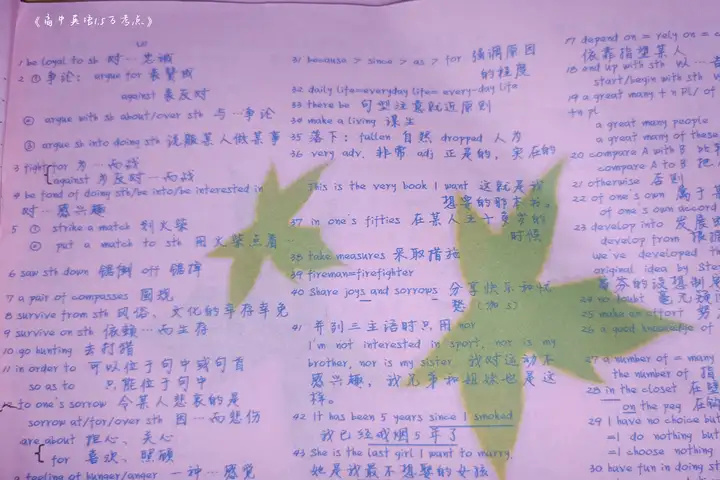 《高中英语150考点》
1 be loyal to sb 对…忠诚
2 ① 争论: argue for 表赞成
against 表反对
② argue with sb about/over sth 与…争论
③ argue sb into doing sth 说服某人做某事
3 fight for 为…而战
against 为反对…而战
4 be fond of doing sth/be into/be interested in
对…感兴趣
5 ① strike a match 划火柴
② put a match to sth 用火柴点着…
6 saw sth down 锯倒 off 锯掉
7 a pair of compasses 圆规
8 survive from sth 风俗、文化的幸存幸免
9 survive on sth 依赖…而生存
10 go hunting 去打猎
11 in order to 可以位于句中或句首
so as to 只能位于句中
to one's sorrow 令某人悲哀的是
sorrow at/for/over sth 因…而悲伤
care about 担心、关心
for 喜欢、照顾
a feeling of hunger/anger 一种…感觉
31 because > since > as > for 强调原因
的程度
32 daily life=everyday life= every-day life
33 there be 句型注意就近原则
34 make a living 谋生
35 落下: fallen 自然 dropped 人为
36 very adv. 非常 adj 正是的, 实在的
This is the very book I want 这就是我
想要的那本书。
37 in one's fifties 在某人五十多岁的
时候
38 take measures 采取措施
39 fireman=firefighter
40 Share joys and sorrows 分享快乐和忧
愁 (加s)
41 并列三主语时只用 nor
I'm not interested in sport, nor is my
brother, nor is my sister. 我对运动不
感兴趣, 我兄弟和姐妹也是这
样。
42 It has been 5 years since I smoked
我已经戒烟5年了
43 She is the last girl I want to marry.
她是我最不想娶的女孩
17 depend on = rely on =
依靠指望某人
18 end up with sth 以…
start/begin with sth
19 a great many + n pl/ of
+n pl
a great many people
a great many of these
20 compare A with B 比
compare A to B 把
21 otherwise 否则
22 of one's own 属于
of one's own accord
23 develop into 发展
develop from
we've developed the
original idea by
24 no doubt 毫无疑
25 make an effort 努
26 a good knowledge of
27 a number of = many
the number of 指
28 in the closet 在
on the peg 在
29 I have no choice but
=I do nothing but
=I choose nothing
30 have fun in doing